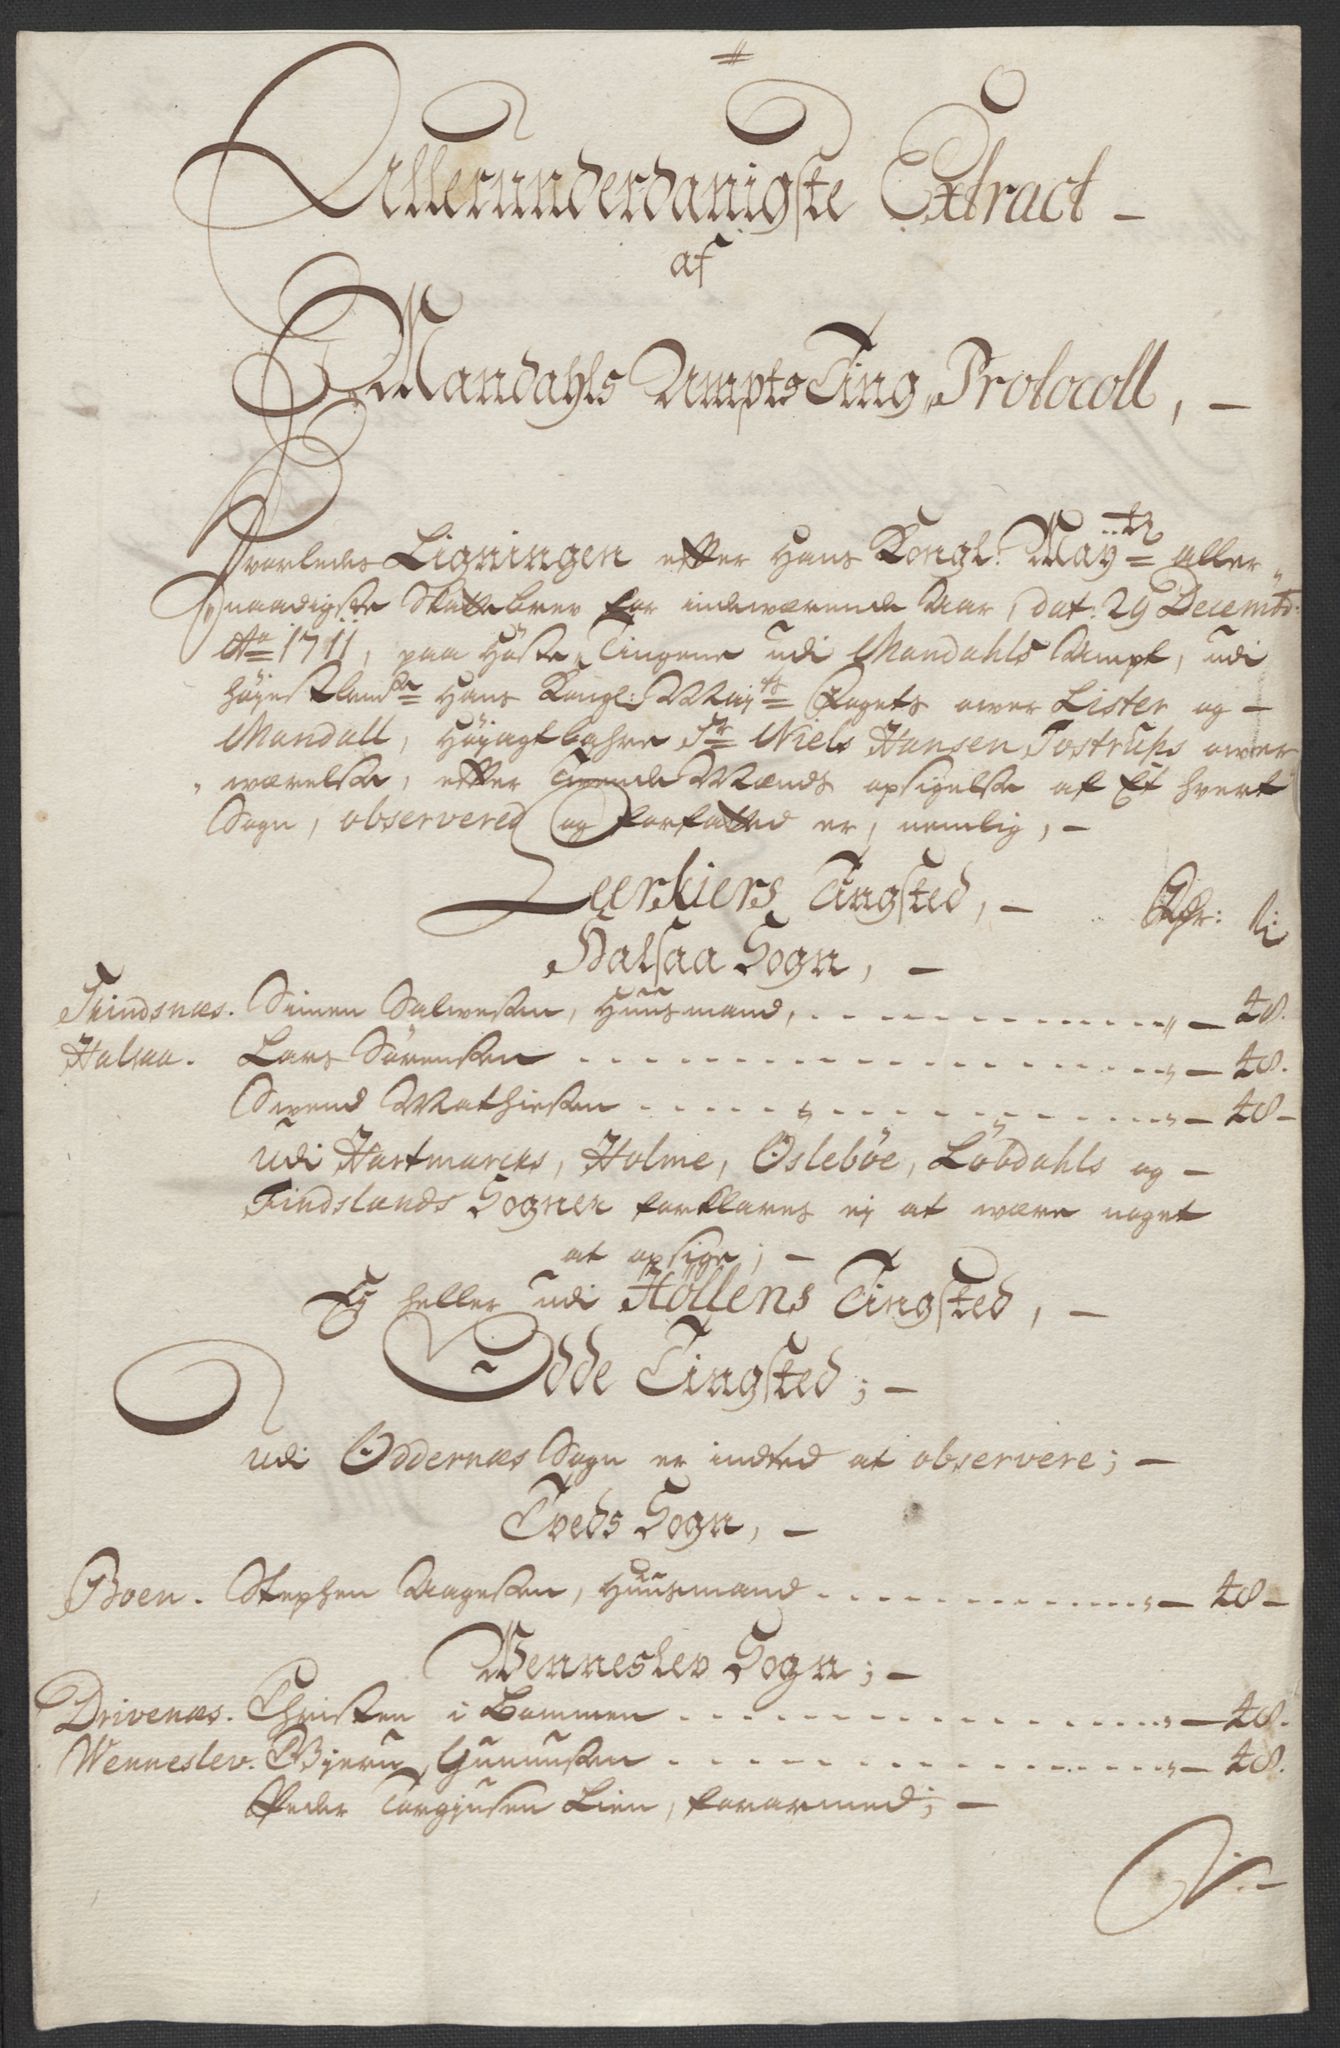 Allerunderdanigste Extract
af
Mandahls Ampts Ting Protocoll, -
Hvorledes Ligningen efter Hans Kongl: Mayts aller
naadigste Skattebrev for indeværende Aar, dat: 29 Decembr:
Ao 1711, paa Høste Tingene udi Mandahls Ampt, udi
Hans Kongl: Mayts Fogets over Lister og -
Mandall, Høyagtbahre Sr Niels Hansen Tostrups over
værelse, efter Mænds opsigelse af Et hvert
Sogn, observered og forfatted er, nemlig, -
Leerkiers Tingsted, - Rdr: ß
Halsaa Sogn, -
Skindsnæs. Simen Salvesen, Huusmand, - 48.
Halsaa. Lars Sørensen - 48.
Svend Mathiesen - 48 -
Udi Hartmarcks, Holme, Øslebøe, Løbdahls og -
Findslands Sogner forklares ej at være noget
at opsige; -
Ej heller udi Höllens Tingsted, -
Odde Tingsted; -
Udi Oddernæs Sogn er indted at observere; -
Tveds Sogn, -
Boen. Stephen Aagesen, Huusmand - 48 -
Wenneslev Sogn; -
Drivenæs. Christen i Bommen - 48.
Wenneslev. Biørn Gunnusen - 48.
Peder Torgjusen Lien, forarmed; -